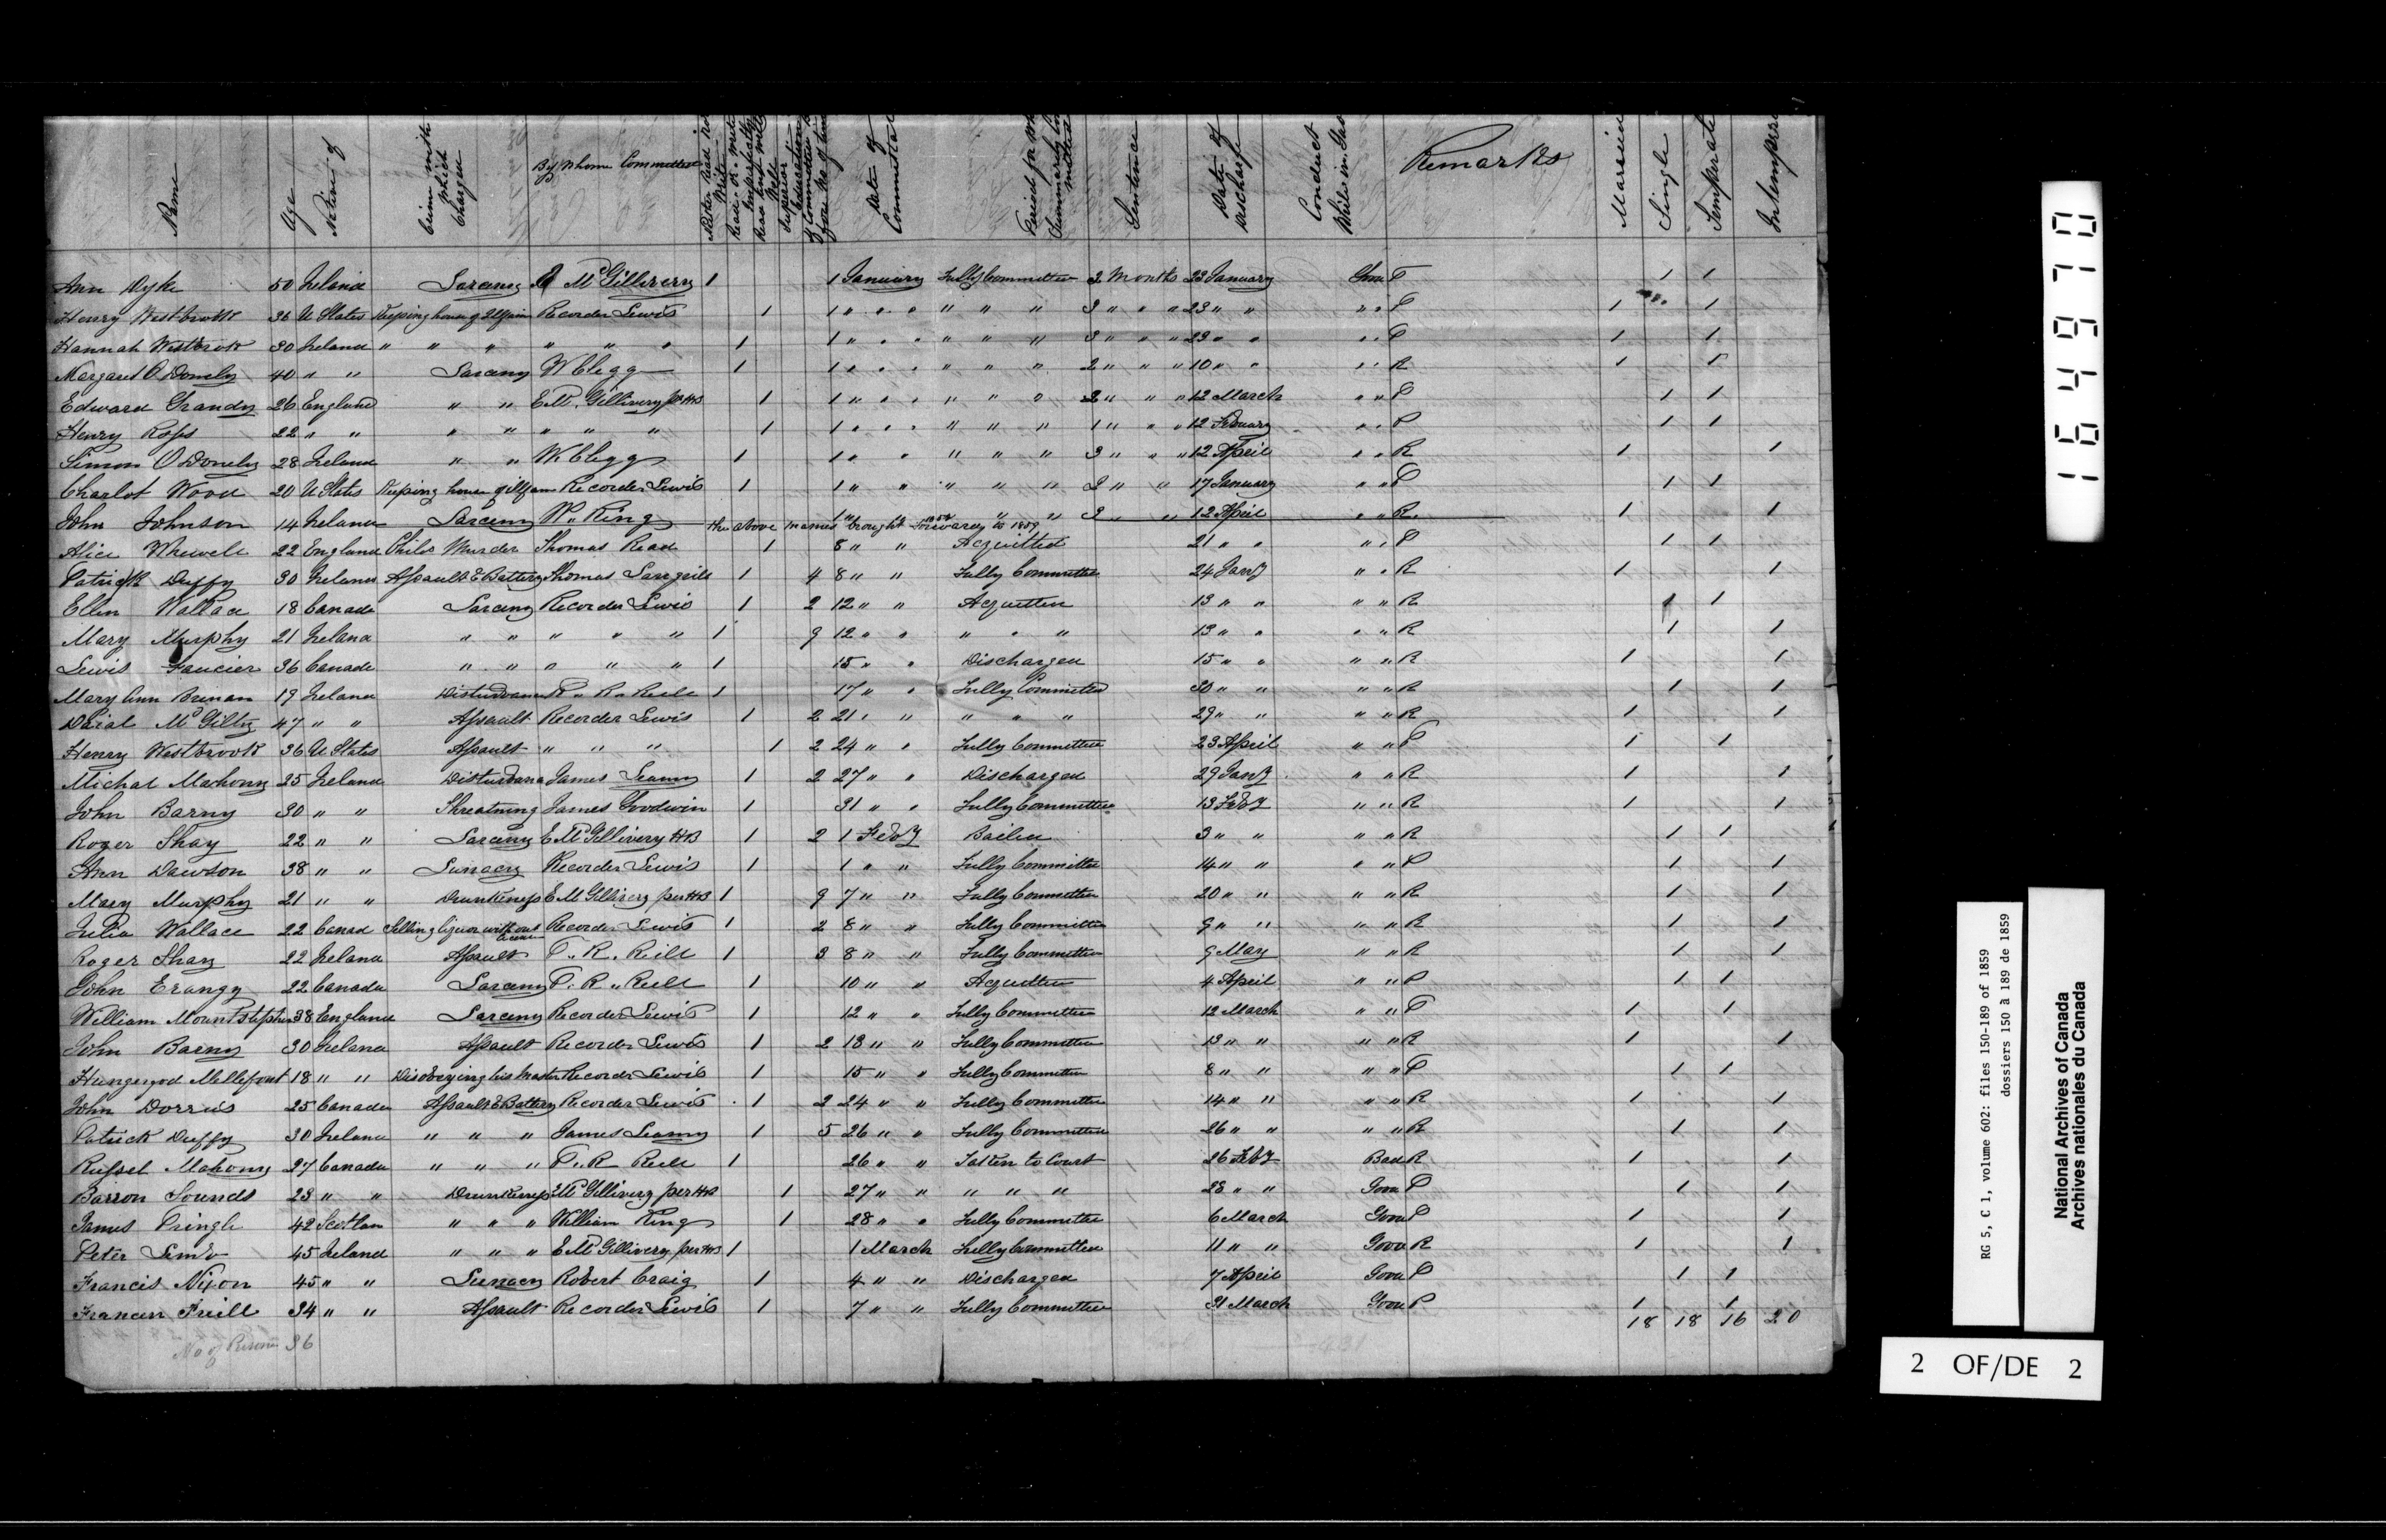 Name Age Native of Crime with Which Charged By Whom Committed Neither Read nor Write Read or Write Imperfectly Read and Write Well Superior Education If Committed before No of times Date of Committal Period for Which Summarily Committed Sentence Date of Discharge Conduct While in Gaol Remarks Married Single Temperate
Ann Dyke 50 Ireland Larceny Mc Gilliverey 1 1 January Fully Committed 2 Months 23 January Good P 1 1
Henry Westbrook 36 U States Keeping house of Recorder Lewis 1 1 " " " " " " 3 " " " 23 " " " " P 1 1
Hannah Westbrook 30 Ireland " " " " " " 1 1 " " " " " " 3 " " " 23 " " " " P 1 1
Margaret O Donely 40 " " Larceny W Clegg 1 1 " " " " " " 2 " " " 10 " " " " R 1 1
Edward Grandy 26 England " " E Mc Gillivery per HB 1 1 " " " " " " 2 " " " 12 March " " P 1 1
Henry Ross 22 " " " " " " " 1 1 " " " " " " 1 " " " 12 Febuary " " P 1 1
Simon O Donely 28 Ireland " " W Clegg 1 1 " " " " " 3 " " " 12 April " " R 1 1
Charlot Wood 20 U States Keeping house of Recorder Lewis 1 1 " " " " " 2 " " 17 January " " P 1 1
John Johnson 14 Ireland Larceny W. King 1 " " " " 3 " " 12 April " " R. 1 1
the above names brought Forward to 1859
Alice Whewell 22 England Child Murder Thomas Read 1 8 " " Acquitted 21 " " " " P 1 1
Patrick Duffy 30 Ireland Assault & Battery Thomas 1 4 8 " " Fully Committed 24 Jany " " R 1 1
Ellen Wallace 18 Canada Larceny Recorder Lewis 1 2 12 " " Acquitted 13 " " " " R 1 1
Mary Murphy 21 Ireland " " " " " 1 9 12 " " " " " 13 " " " " R 1 1
Lewis Faucier 36 Canada " " " " " 1 15 " " Discharged 15 " " " " R 1 1
Mary Ann Brenan 19 Ireland Disturbance R. Reill 1 17 " " Fully Committed 30 " " " " R 1 1
Mc Gilty 47 " " Assault Recorder Lewis 1 2 21 " " " " " 29 " " " " R 1 1
Henry Westbrook 36 U States Assault " " " 1 2 24 " " Fully Committed 23 April " " P 1 1
Michal Mahony 25 Ireland Disturbance James Leamy 1 2 27 " " Discharged 29 Jany " " R 1 1
John Barny 30 " " Threatning James Goodwin 1 31 " " Fully Committed 13 Feby " " R 1 1
Roger Shay 22 " " Larceny E Mc Gillivery HB 1 2 1 Feby Bailed 3 " " " " R 1 1
Ann Dawson 38 " " Lunacy Recorder Lewis 1 1 " " Fully Committed 14 " " " " P 1 1
Mary Murphy 21 " " Drunkeness E Mc Gillivery per HB 1 9 7 " " Fully Committed 20 " " " " R 1 1
Julia Wallace 22 Canad Selling liquor without Recorder Lewis 1 2 8 " " Fully Committed 9 " " " " R 1 1
Roger Shay 22 Ireland Assault T. R. Reill 1 3 8 " " Fully Committed 9 May " " R 1 1
John Erangy 22 Canada Larceny T. R. Reill 1 10 " " Acquitted 4 April " " P 1 1
William Mountstephen 38 England Larceny Recorder Lewis 1 12 " " Fully Committed 12 March " " P 1 1
John Barny 30 Ireland Assault Recorder Lewis 1 2 13 " " Fully Committed 13 " " " " R 1 1
Hungerpod Mellefont 18 " " Disobeying his Master Recorder Lewis 1 15 " " Fully Committed 8 " " " " P 1 1
John Dorris 25 Canada Assault & Battery Recorder Lewis 1 2 24 " " Fully Committed 14 " " " " R 1 1
Patrick Duffy 30 Ireland " " " James Leamy 1 5 26 " " Fully Committed 26 " " " " R 1 1
Russel Mahony 27 Canada " " " T. R Reill 1 26 " " Taken to Court 26 Feby Bad R 1 1
Barron Sounds 23 " " Drunkeness E Mc Gillivery per HB 1 27 " " " " " 28 " " Good P 1 1
James Pringle 42 Scotlan " " " William King 1 28 " " Fully Committed 6 March Good P 1 1
Peter 45 Ireland " " " E Mc Gillivery per HB 1 1 March Fully Committed 11 " " Good R 1 1
Francis Nixon 45 " " Lunacy Robert Craig 1 4 " " Discharged 7 April Good P 1 1
Francis Frill 34 " " Assault Recorder Lewis 1 7 " " Fully Committed 31 March Good P 1 1
18 18 16 20
No of Prisoners 36
1649870
RG 5, C 1, volume 602: files 150-189 of 1859
dossiers 150 à 189 de 1859
National Archives of Canada
Archives nationales du Canada
2 OF/DE 2